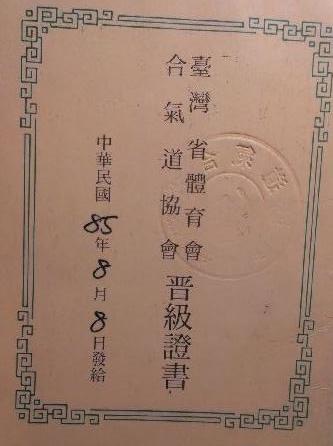 臺灣省體育會
合氣道協會
晋級證書
中華民國85年8月8日發給